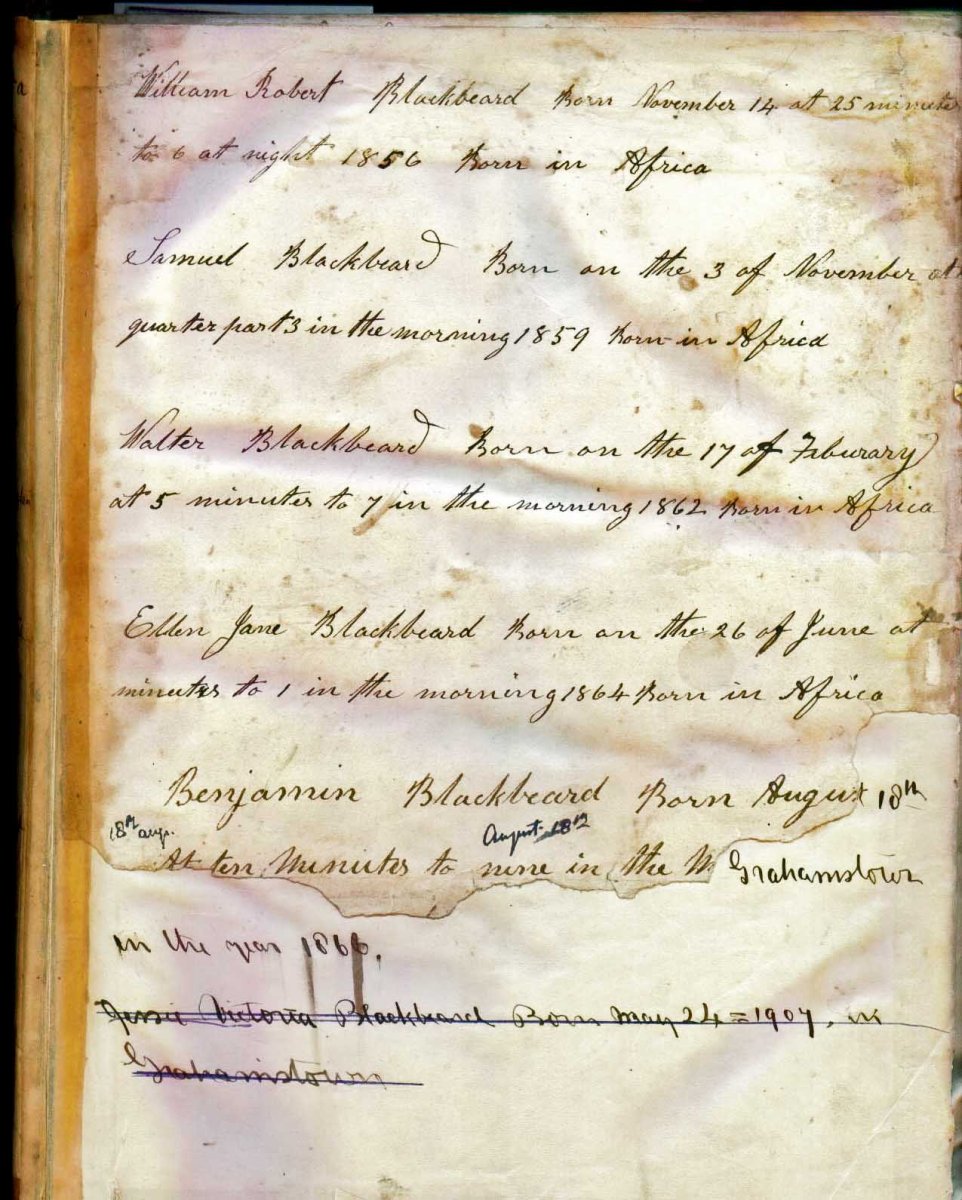 William Robert Blackbeard Born November 14 at 25 minutes
to 6 at night 1856 Born in Africa
Samuel Blackbeard Born on the 3 of November at
quarter past 3 in the morning 1859 Born in Africa
Walter Blackbeard Born on the 17 of Feburary
at 5 minutes to 7 in the morning 1862 Born in Africa
Ellen Jane Blackbeard Born on the 26 of June at
minutes to 1 in the morning 1864 Born in Africa
Benjamin Blackbeard Born August 18th
18th augs. August 18th
At ten Minutes to nine in the M Grahamstown
in the year 1866.
Jessie Victoria Blackbeard Born May 24 = 1907, in
Grahamstown